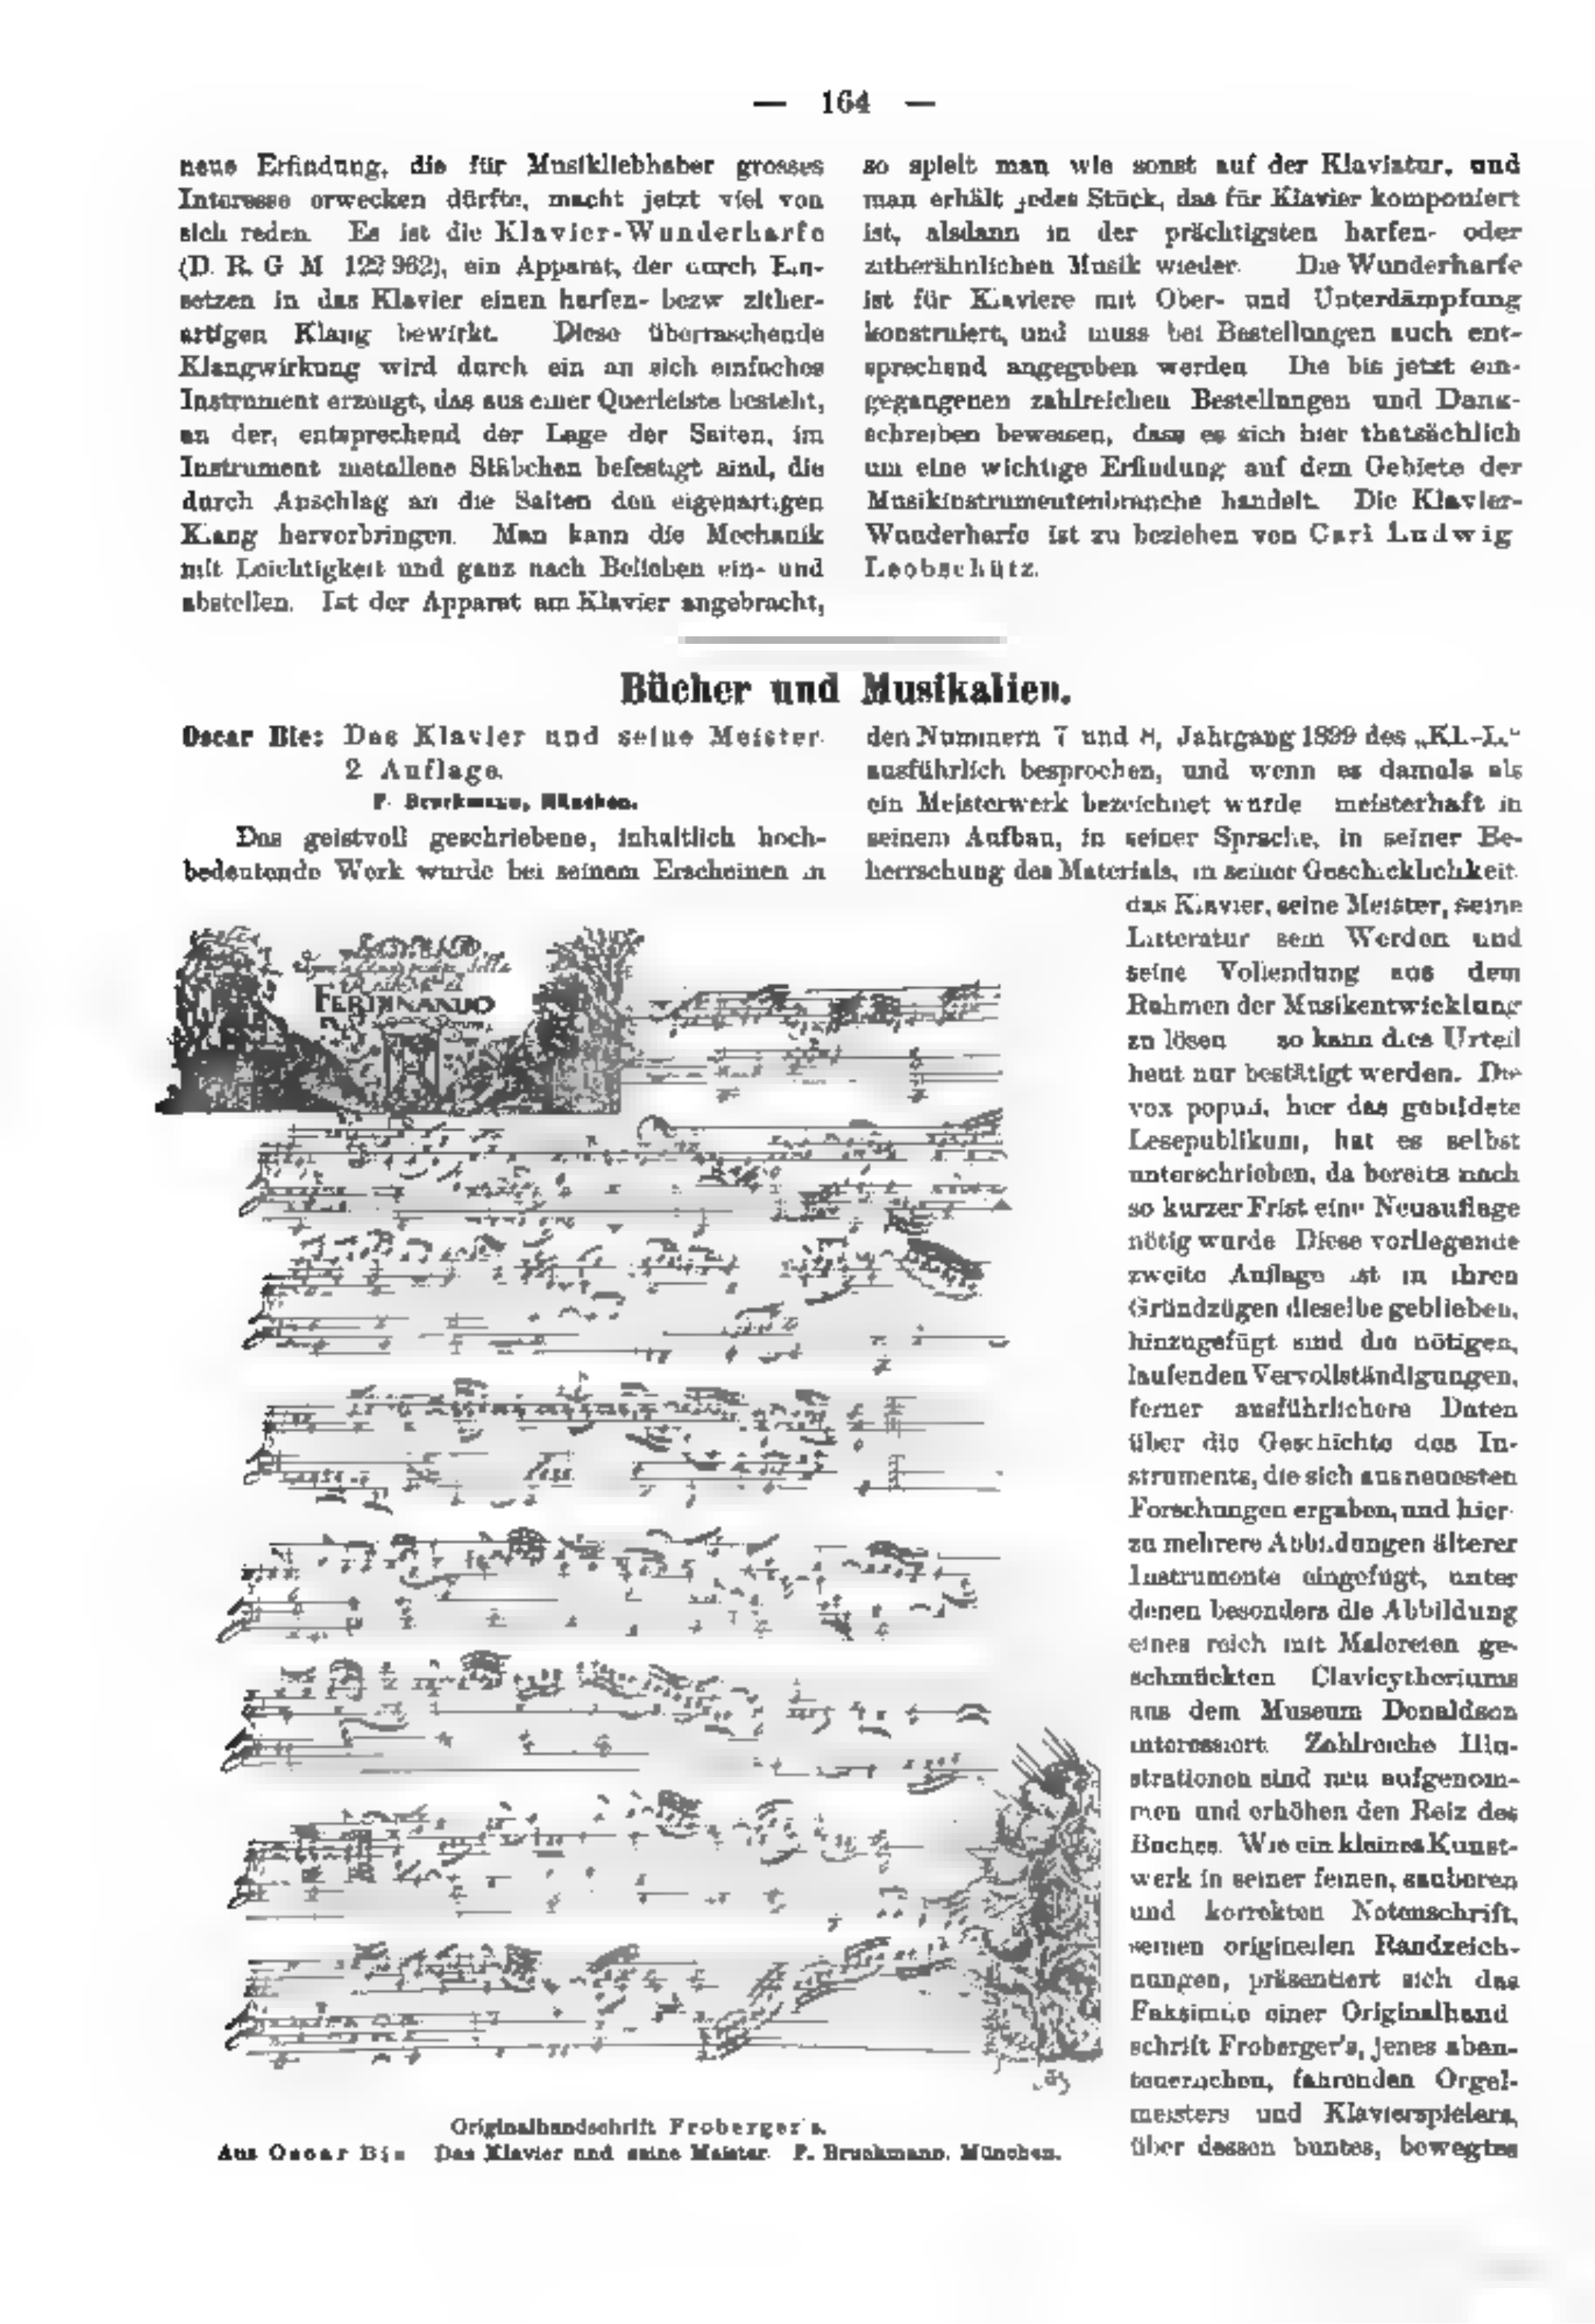 — 164 —
neue Erfindung, die für Musikliebhaber grosses
Interesse erwecken dürfte, macht jetzt viel von
sich reden. Es ist die Klavier-Wunderharfe
(D. R. G M 122 962), ein Apparat, der durch Ein-
setzen in das Klavier einen harfen- bezw zither-
artigen Klang bewirkt. Diese überraschende
Klangwirkung wird durch ein an sich einfaches
Instrument erzeugt, das aus einer Querleiste besteht,
an der, entsprechend der Lage der Saiten, im
Instrument metallene Stäbchen befestigt sind, die
durch Anschlag an die Saiten den eigenartigen
Klang hervorbringen. Man kann die Mechanik
mit Leichtigkeit und ganz nach Belieben ein- und
abstellen. Ist der Apparat am Klavier angebracht,
so spielt man wie sonst auf der Klaviatur, und
man erhält jedes Stück, das für Klavier komponiert
ist, alsdann in der prächtigsten harfen- oder
zitherähnlichen Musik wieder. Die Wunderharfe
ist für Klaviere mit Ober- und Unterdämpfung
konstruiert, und muss bei Bestellungen auch ent-
sprechend angegeben werden Die bis jetzt ein-
gegangenen zahlreichen Bestellungen und Dank-
schreiben beweisen, dass es sich hier thatsächlich
um eine wichtige Erfindung auf dem Gebiete der
Musikinstrumentenbranche handelt. Die Klavier-
Wunderharfe ist zu beziehen von Carl Ludwig
Leobschütz.
Bücher und Musikalien.
Oscar Bie: Das Klavier und seine Meister.
2 Auflage.
F. Bruckmann, München.
Das geistvoll geschriebene, inhaltlich hoch-
bedeutende Werk wurde bei seinem Erscheinen in
den Nummern 7 und 8, Jahrgang 1899 des „Kl.-L.“
ausführlich besprochen, und wenn es damals als
ein Meisterwerk bezeichnet wurde meisterhaft in
seinem Aufbau, in seiner Sprache, in seiner Be-
herrschung des Materials, in seiner Geschicklichkeit
das Klavier, seine Meister, seine
Litteratur sein Werden und
seine Vollendung aus dem
Rahmen der Musikentwicklung
zu lösen so kann dies Urteil
heut nur bestätigt werden. Die
vox populi, hier das gebildete
Lesepublikum, hat es selbst
unterschrieben, da bereits nach
so kurzer Frist eine Neuauflage
nötig wurde Diese vorliegende
zweite Auflage ist in ihren
Gründzügen dieselbe geblieben,
hinzugefügt sind die nötigen,
laufenden Vervollständigungen,
ferner ausführlichere Daten
über die Geschichte des In-
struments, die sich aus neuesten
Forschungen ergaben, und hier-
zu mehrere Abbildungen älterer
Instrumente eingefügt, unter
denen besonders die Abbildung
eines reich mit Malereien ge-
schmückten Clavicytheriums
aus dem Museum Donaldson
interessiert. Zahlreiche Illu-
strationen sind neu aufgenom-
men und erhöhen den Reiz des
Buches. Wie ein kleines Kunst-
werk in seiner feinen, sauberen
und korrekten Notenschrift,
seinen originellen Randzeich-
nungen, präsentiert sich das
Faksimile einer Originalhand
schrift Froberger's, jenes aben-
teuerlichen, fahrenden Orgel-
meisters und Klavierspielers,
über dessen buntes, bewegtes
FERDINANDO
Originalhandschrift Froberger's.
Aus Oscar Bie Das Klavier und seine Meister. F. Bruckmann, München.